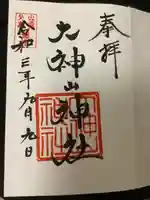 奉拝
大神山神社
令和三年九月九日